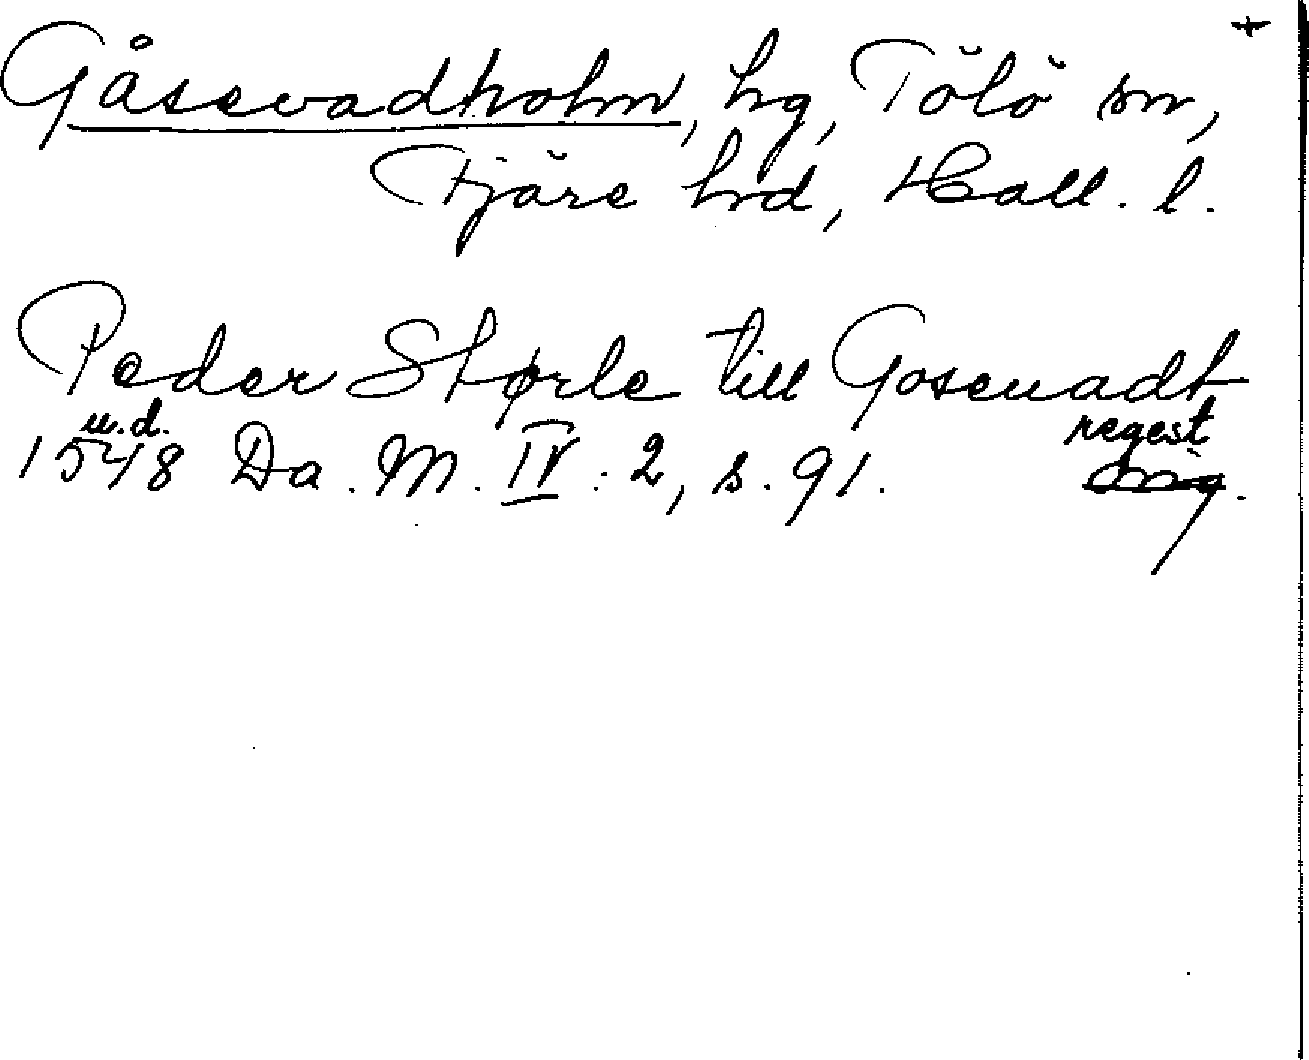 +
Gåsevadholm, hg, Tölö sn,
Fjäre hd, Hall. l.
Peder Størle till Goseuadt
u.d. regest
1548 Da. M. IV : 2, s. 91.